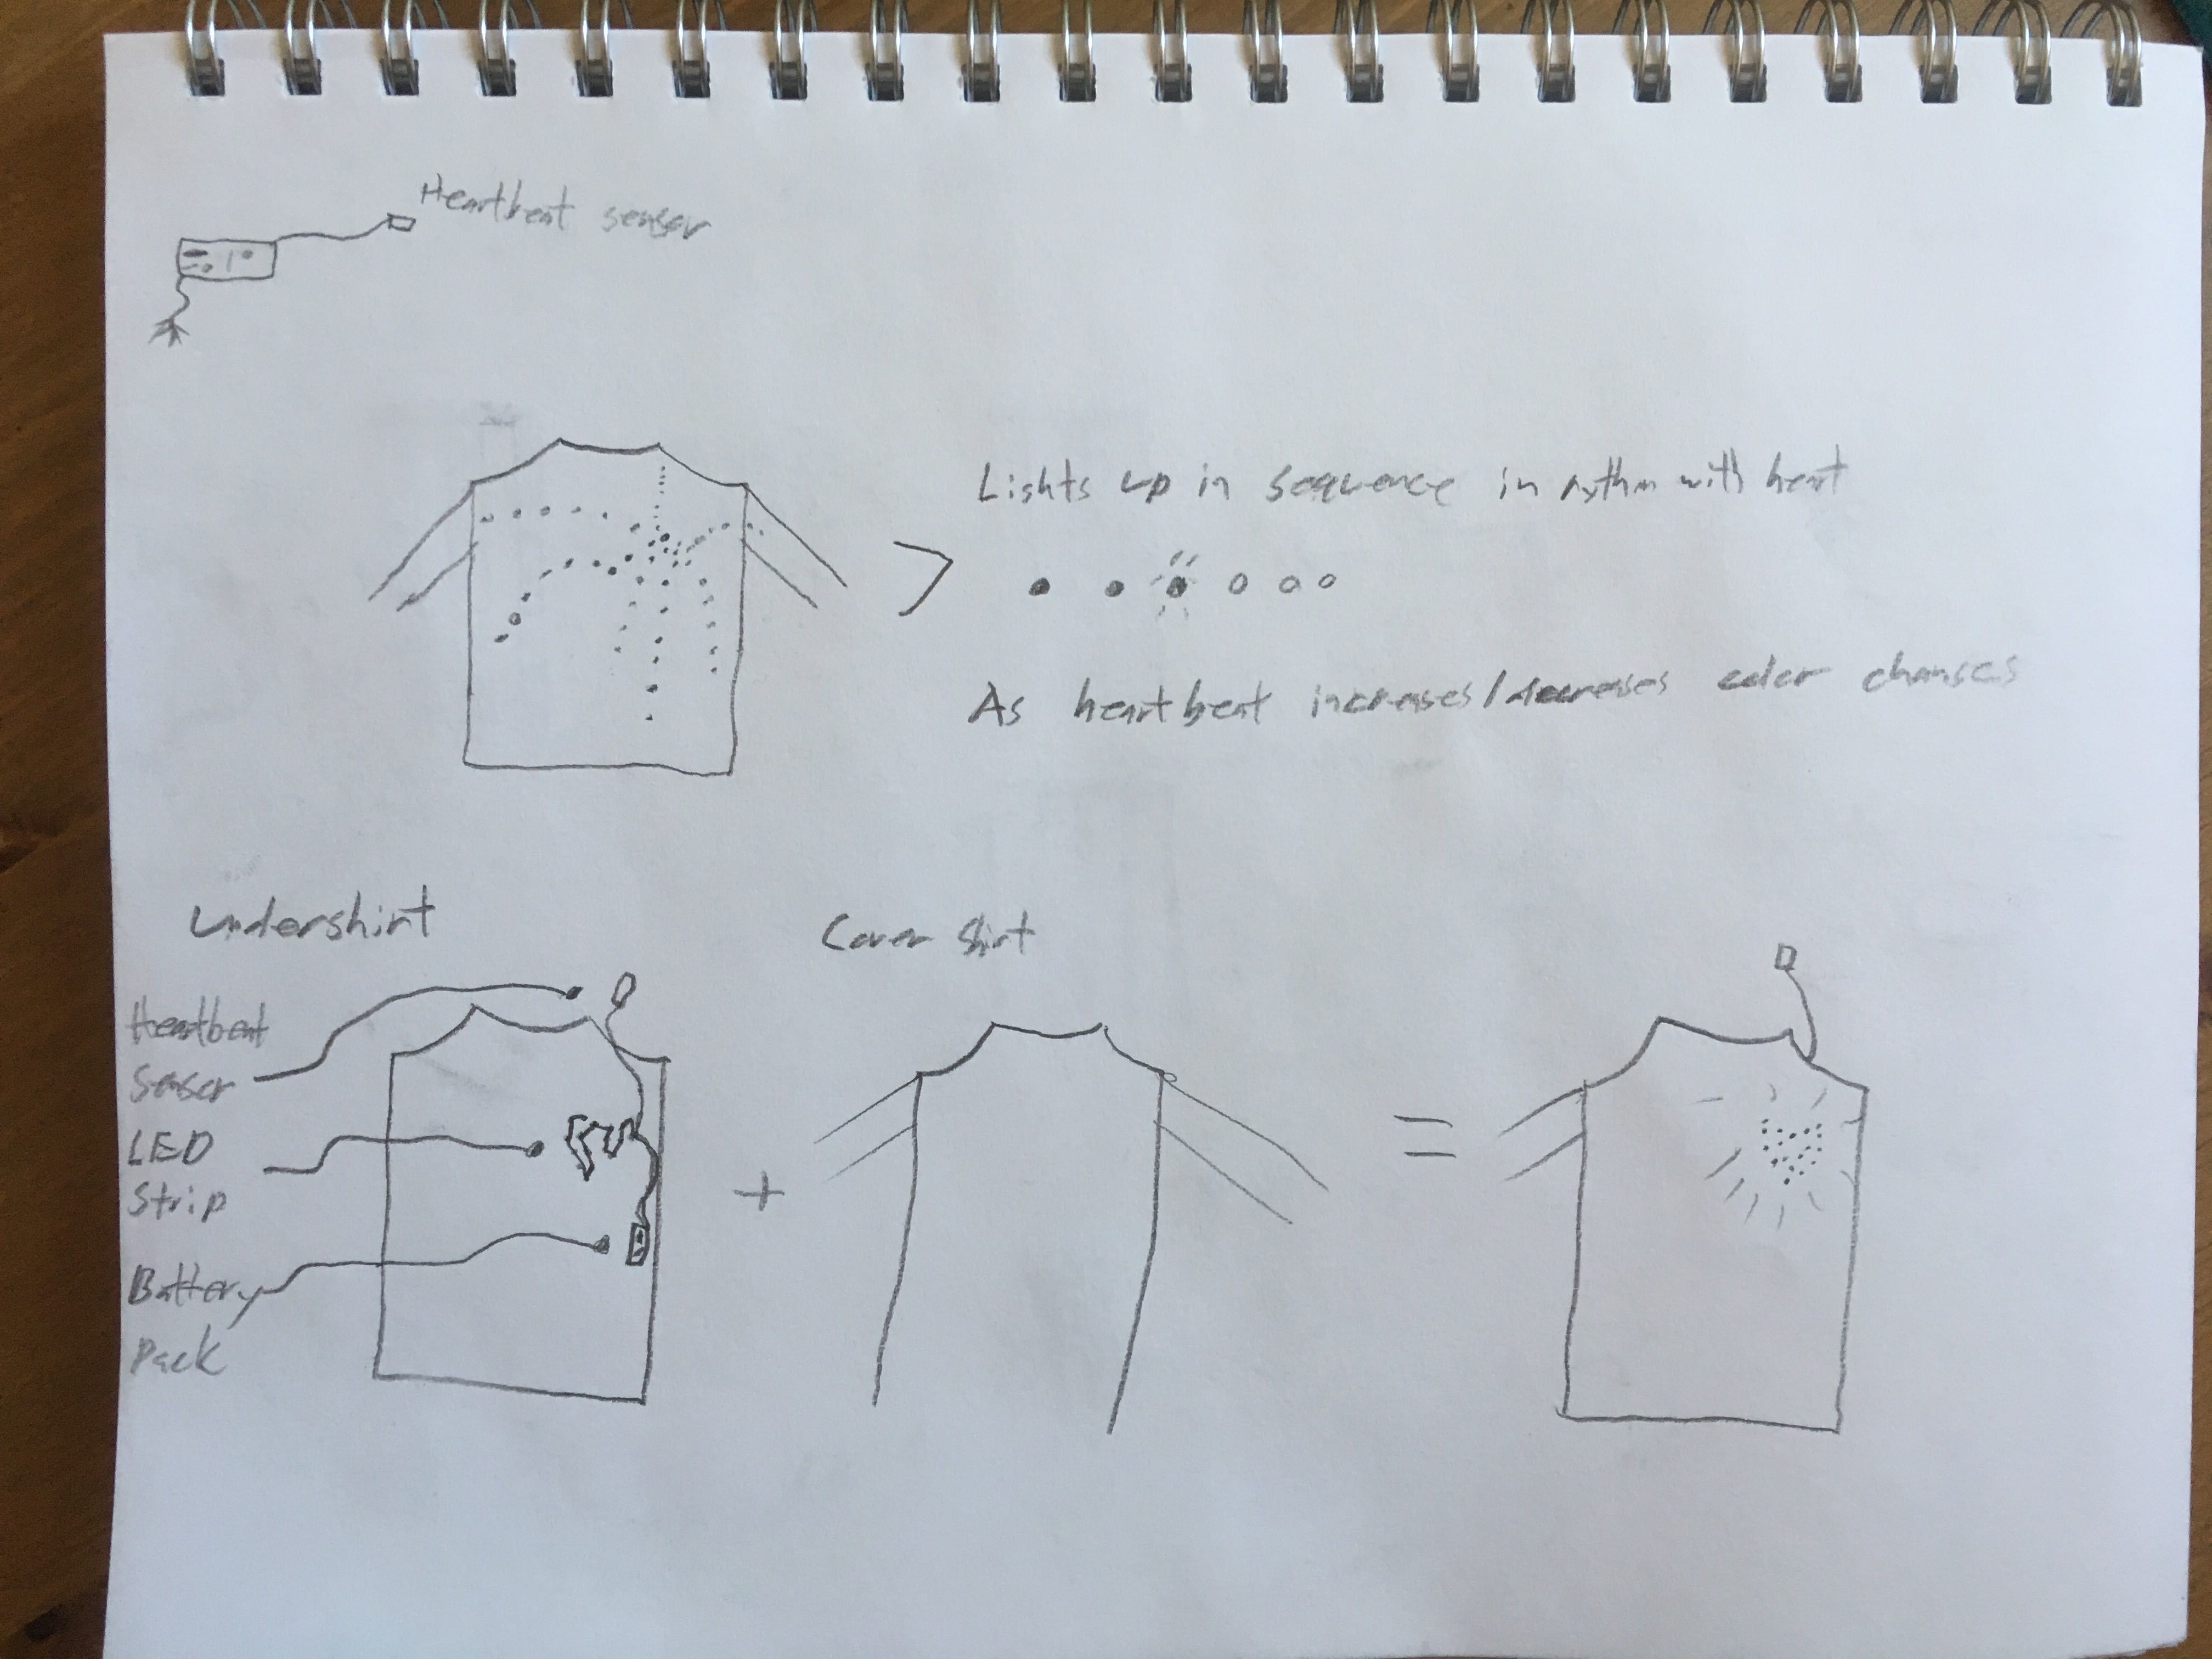 Heartbeat sensor
Lights up in sequence in rythm with heart
As heartbeat increases/decreases color changes
Undershirt
Cover Shirt
Heartbeat
Senser
LED
Strip
+
=
Battery
Pack